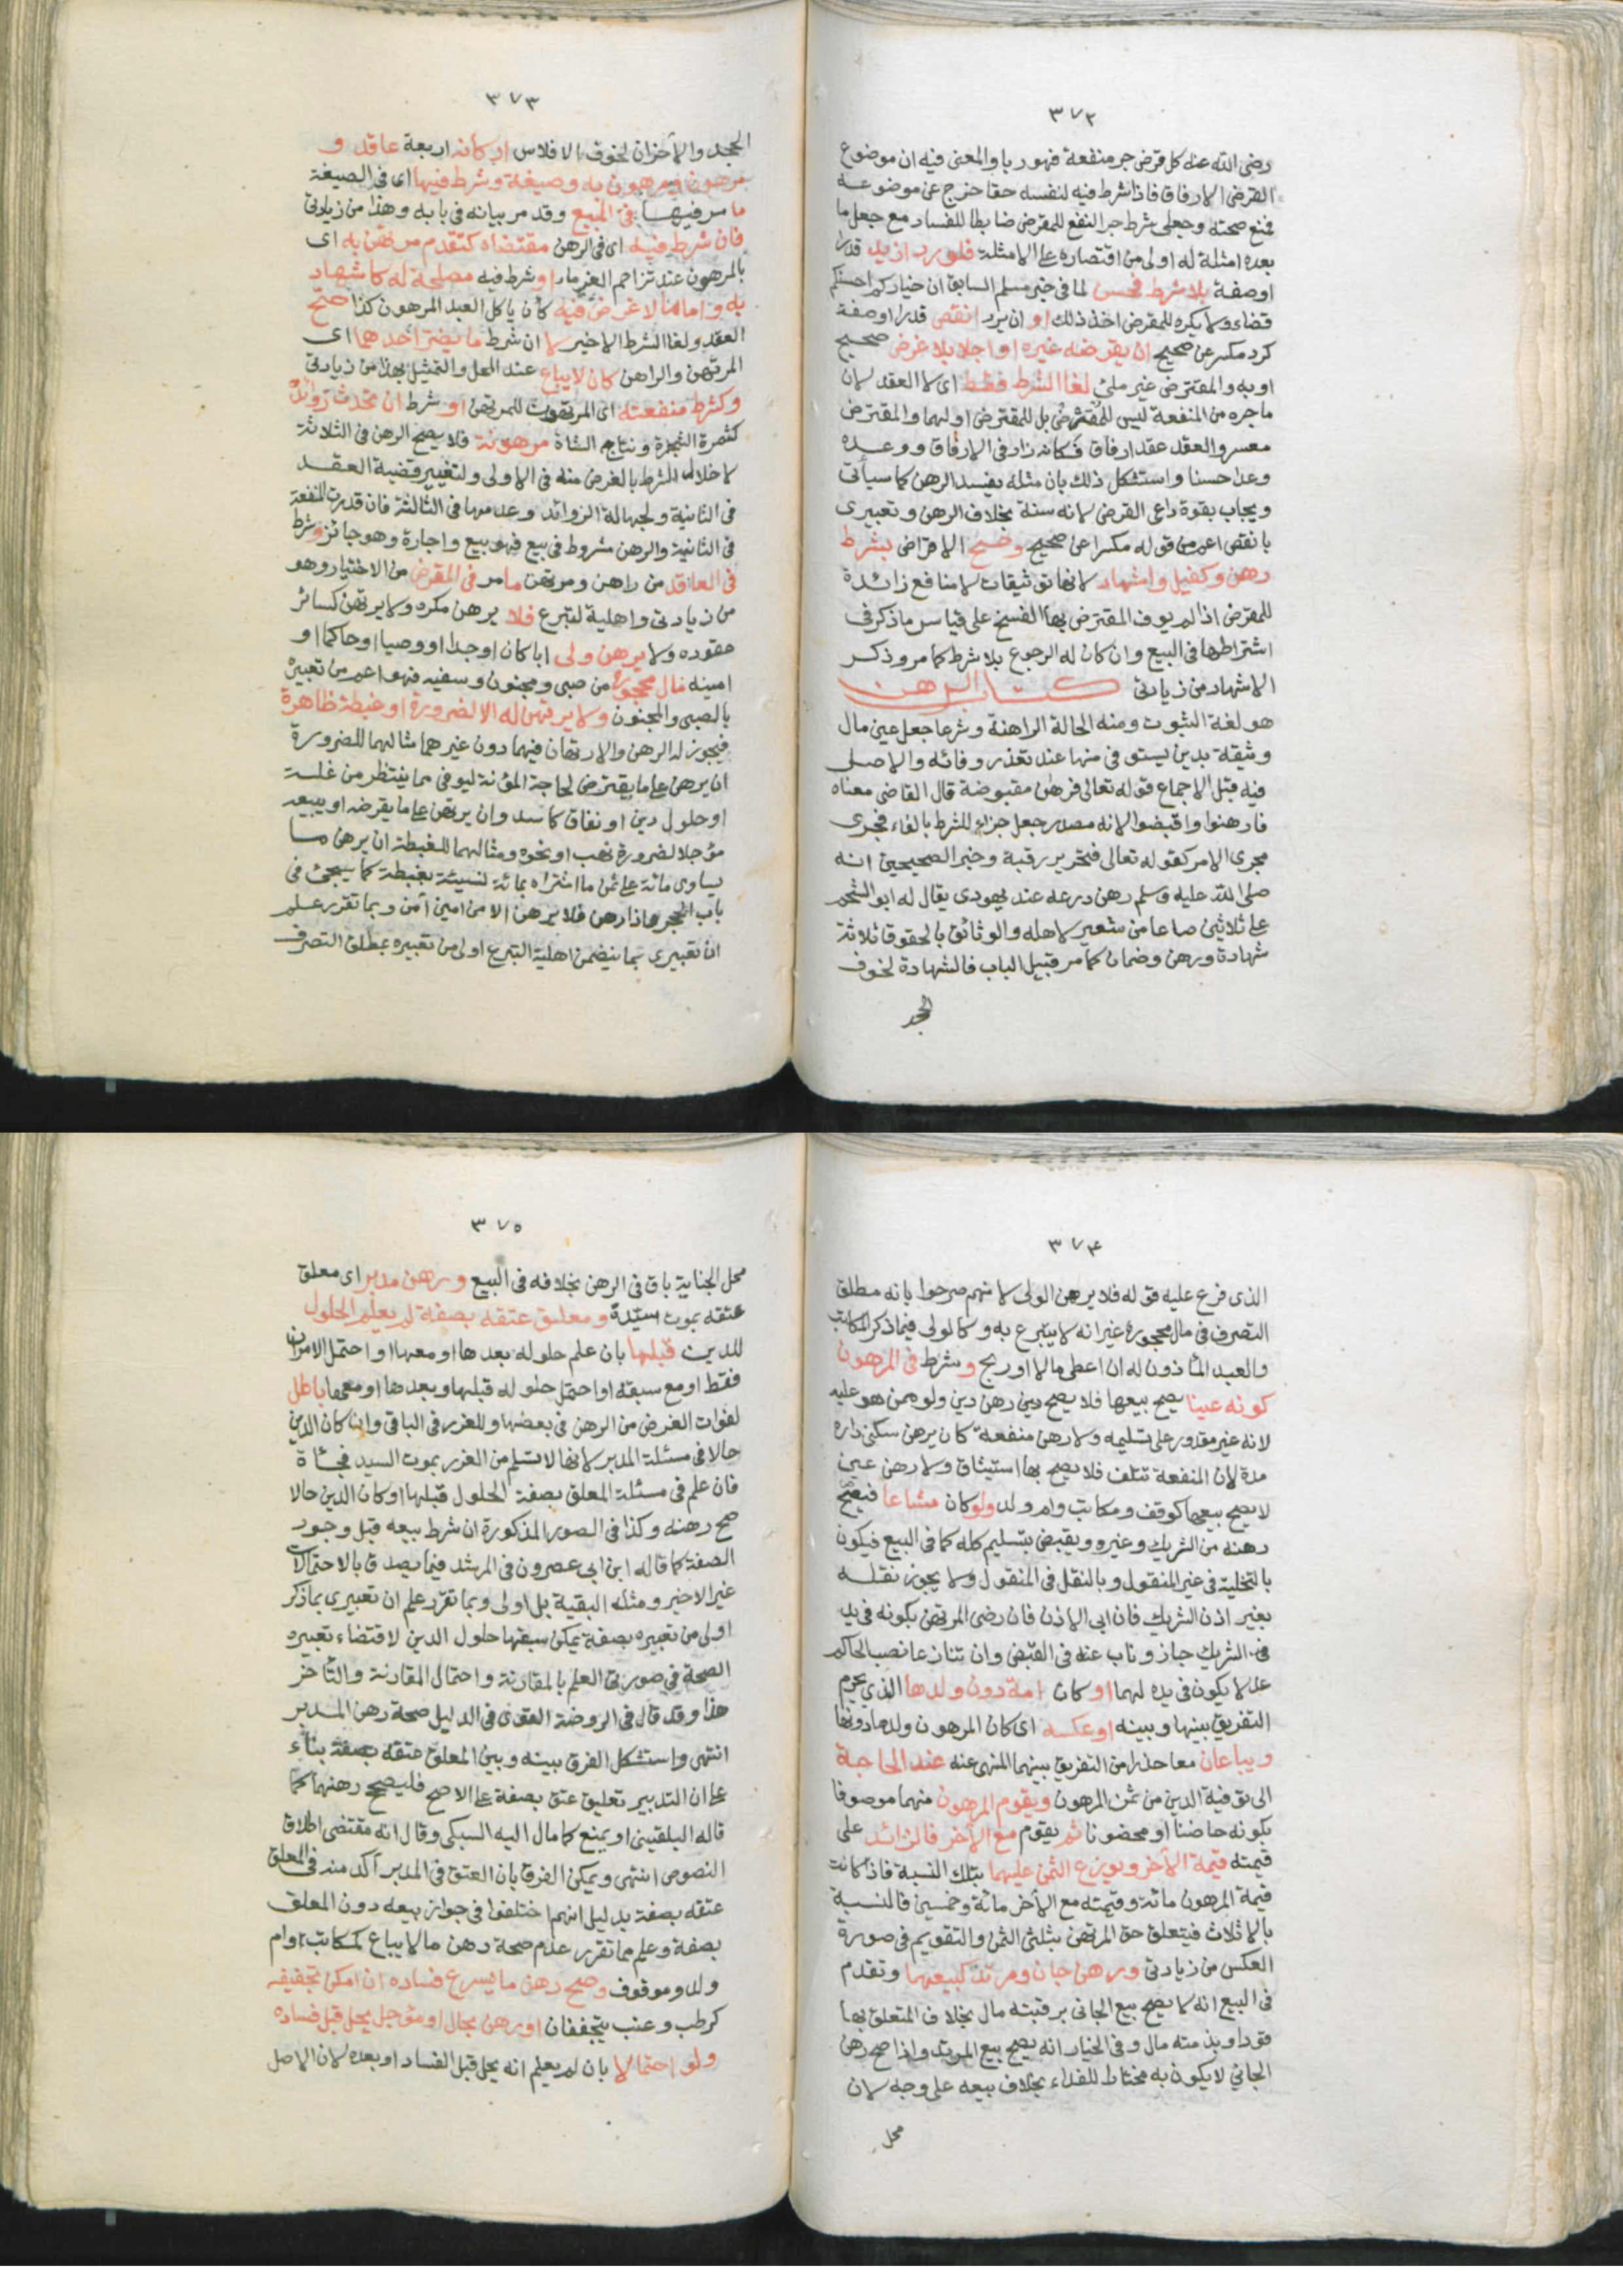 ٣٧٢
رضى الله عنه كل قرض جر منفعة فهو ربا والمعنى فيه ان موضوع
القرض الارفاق فاذا شرط فيه لنفسه حقا خرج عن موضوعه
فمنع صحته وجعلى شرط جر النفع للمقرض ضابطا للفساد مع جعل ما
بعده امثلة له اولى من اقتصاره على الامثلة فلو رد ازيد قدرا
او صفة بلا شرط فحسن لما فى خبر مسلم السابق ان خياركم احسنكم
قضاء ولا يكره للمقرض اخذ ذلك او ان يرد انقص قدرا او صفة
كرد مكسر عن صحيح ان يقرضه غيره او اجلا بلا غرض صحيح
او به والمقترض غير ملئ لغا الشرط فقط اى لا العقد لان
ما جره من المنفعة ليس للمقرض بل للمقترض او لهما والمقترض
معسر والعقد عقد ارفاق فكانه زاد فى الارفاق ووعده
وعدا حسنا واستشكل ذلك بان مثله يفسد الرهن كما سيأتى
ويجاب بقوة داعى القرض لانه سنة بخلاف الرهن وتعبيرى
بانقص اعم من قوله مكسرا عن صحيح وصح الاقراض بشرط
رهن وكفيل واشهاد لانها توثيقات لا منافع زائدة
للمقرض اذا لم يوف المقترض بها الفسخ على قياس ما ذكر فى
اشتراطها فى البيع وان كان له الرجوع بلا شرط كما مر وذكر
الاشهاد من زيادتى كتاب الرهن
هو لغة الثبوت ومنه الحالة الراهنة وشرعا جعل عين مال
وثيقة بدين يستوفى منها عند تعذر وفائه والاصل
فيه قبل الاجماع قوله تعالى فرهن مقبوضة قال القاضى معناه
فارهنوا واقبضوا لانه مصدر جعل جزاء للشرط بالفاء فجرى
مجرى الامر كقوله تعالى فتحرير رقبة وخبر الصحيحين انه
صلى الله عليه وسلم رهن درعه عند يهودى يقال له ابو الشحم
على ثلاثين صاعا من شعير لاهله والوثائق بالحقوق ثلاثة
شهادة ورهن وضمان كما مر قبيل الباب فالشهادة لخوف
الجحد
٣٧٣
الجحد والآخران لخوف الافلاس اركانه اربعة عاقد و
مرهون ومرهون به وصيغة وشرط فيها اى فى الصيغة
ما مر فيها فى البيع وقد مر بيانه فى بابه وهذا من زيادتى
فان شرط فيه اى فى الرهن مقتضاه كتقدم مرتهن به اى
بالمرهون عند تزاحم الغرماء او شرط فيه مصلحة له كاشهاد
به واما ما لا غرض فيه كأن ياكل العبد المرهون كذا صح
العقد ولغا الشرط الاخير لا ان شرط ما يضر احدهما اى
المرتهن والراهن كان لا يباع عند المحل والتمثيل بهذا من زيادتى
وكشرط منفعته اى المرهون للمرتهن او شرط ان تحدث زوائده
كثمرة الشجرة ونتاج الشاة مرهونة فلا يصح الرهن فى الثلاثة
لاخلال الشرط بالغرض منه فى الاولى ولتغيير قضية العقد
فى الثانية ولجهالة الزوائد وعدمها فى الثالثة فان قدرت المنفعة
فى الثانية والرهن مشروط فى بيع فهو بيع واجارة وهو جائز وشرط
فى العاقد من راهن ومرتهن ما مر فى المقرض من الاختيار وهو
من زيادتى واهلية لتبرع فلا يرهن مكره ولا يرتهن كسائر
عقوده ولا يرهن ولى ابا كان او جدا او وصيا او حاكما او
امينه مال محجوره من صبى ومجنون وسفيه فهو اعم من تعبيره
بالصبى والمجنون ولا يرتهن له الا لضرورة او غبطة ظاهرة
فيجوز له الرهن والارتهان فيهما دون غيرهما مثالهما للضرورة
ان يرهن على ما يقترض لحاجة المؤنة ليوفى مما ينتظر من غلة
او حلول دين او نفاق كاسد وان يرتهن على ما يقرضه او يبيعه
مؤجلا لضرورة نهب او نحوه ومثالهما للغبطة ان يرهن ما
يساوى مائة على ثمن ما اشتراه بمائة نسيئة بغبطة كما سيجئ فى
باب الحجر واذا رهن فلا يرهن الا من امين آمن وبما تقرر علم
ان تعبيرى بما يتضمن اهلية التبرع اولى من تعبيره بمطلق التصرف
٣٧٤
الذى فرع عليه قوله فلا يرهن الولى لانهم صرحوا بانه مطلق
التصرف فى مال محجوره غير انه لا يتبرع به وكالولى فيما ذكر المكاتب
والعبد المأذون له ان اعطى مالا او ربح وشرط فى المرهون
كونه عينا يصح بيعها فلا يصح رهن دين ولو ممن هو عليه
لانه غير مقدور على تسليمه ولا رهن منفعة كان يرهن سكنى داره
مدة لان المنفعة تتلف فلا يصح بها استيثاق ولا رهن عين
لا يصح بيعها كوقف ومكاتب وام ولد ولو كان مشاعا فيصح
رهنه من الشريك وغيره ويقبض بتسليم كله كما فى البيع فيكون
بالتخلية فى غير المنقول وبالنقل فى المنقول ولا يجوز نقله
بغير اذن الشريك فان ابى الاذن فان رضى المرتهن بكونه فى يد
الشريك جاز وناب عنه فى القبض وان تنازعا نصب الحاكم
عدلا يكون فى يده لهما او كان امة دون ولدها الذى يحرم
التفريق بينها وبينه او عكسه اى كان المرهون ولدها دونها
ويباعان معا حذرا من التفريق بينهما المنهى عنه عند الحاجة
الى توفية الدين من ثمن المرهون ويقوم المرهون منهما موصوفا
بكونه حاضنا او محضونا ثم يقوم مع الآخر فالزائد على
قيمته قيمة الآخر ويوزع الثمن عليهما بتلك النسبة فاذا كانت
قيمة المرهون مائة وقيمته مع الآخر مائة وخمسين فالنسبة
بالاثلاث فيتعلق حق المرتهن بثلثى الثمن والتقويم فى صورة
العكس من زيادتى ورهن جان ومرتد كبيعهما وتقدم
فى البيع انه لا يصح بيع الجانى برقبته مال بخلاف المتعلق بها
قود او بذمته مال وفى الخيار انه يصح بيع المرتد واذا صح رهن
الجانى لا يكون به مختارا للفداء بخلاف بيعه على وجه لان
محل
٣٧٥
محل الجناية باق فى الرهن بخلافه فى البيع ورهن مدبر اى معلق
عتقه بموت سيده ومعلق عتقه بصفة لم يعلم الحلول
للدين قبلها بان علم حلوله بعدها او معها او احتمل الامران
فقط او مع سبقه او احتمل حلوله قبلها وبعدها او معها باطل
لفوات الغرض من الرهن فى بعضها وللغرر فى الباقى وان كان الدين
حالا فى مسئلة المدبر لانها لا تسلم من الغرر بموت السيد فجأة
فان علم فى مسئلة المعلق بصفة الحلول قبلها او كان الدين حالا
صح رهنه وكذا فى الصور المذكورة ان شرط بيعه قبل وجود
الصفة كما قاله ابن ابى عصرون فى المرشد فيما يصدق بالاحتمالات
غير الاخير ومثله البقية بل اولى وبما تقرر علم ان تعبيرى بما ذكر
اولى من تعبيره بصفة يمكن سبقها حلول الدين لاقتضاء تعبيره
الصحة فى صورتى العلم بالمقارنة واحتمال المقارنة والتأخر
هذا وقد قال فى الروضة القوى فى الدليل صحة رهن المدبر
انتهى واستشكل الفرق بينه وبين المعلق عتقه بصفة بناء
على ان التدبير تعليق عتق بصفة على الاصح فليصح رهنهما كما
قاله البلقينى او يمنع كما مال اليه السبكى وقال انه مقتضى اطلاق
النصوص انتهى ويمكن الفرق بان العتق فى المدبر آكد منه فى المعلق
عتقه بصفة بدليل انهم اختلفوا فى جواز بيعه دون المعلق
بصفة وعلم مما تقرر عدم صحة رهن ما لا يباع كمكاتب وام
ولد وموقوف وصح رهن ما يسرع فساده ان امكن تجفيفه
كرطب وعنب يتجففان او رهن بحال او مؤجل يحل قبل فساده
ولو احتمالا بان لم يعلم انه يحل قبل الفساد او بعده لان الاصل